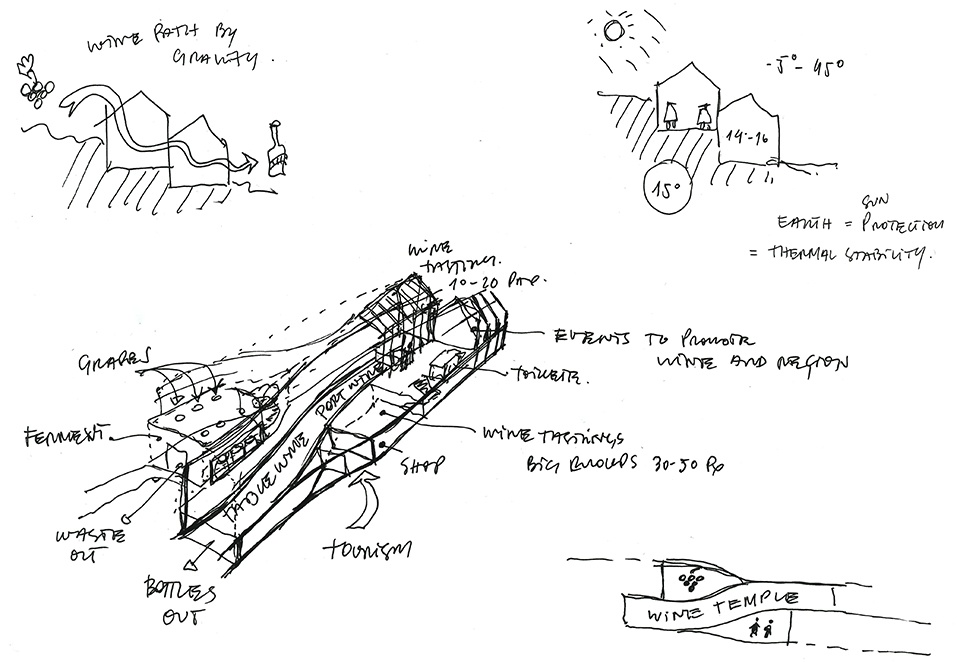 WINE PATH BY
GRAVITY.
-5°-45°
14°-16
15°
SUN
EARTH = PROTECTION
= THERMAL STABILITY.
WINE
TASTING.
10-20
EVENTS TO PROMOTE
WINE AND REGION
TOILETE.
GRAPES
FERMENT
PORT WINE
TABLE WINE
WINE TASTINGS
BIG GROUPS 30-50
SHOP
WASTE
OUT
TOURISM
BOTTLES
OUT
WINE TEMPLE